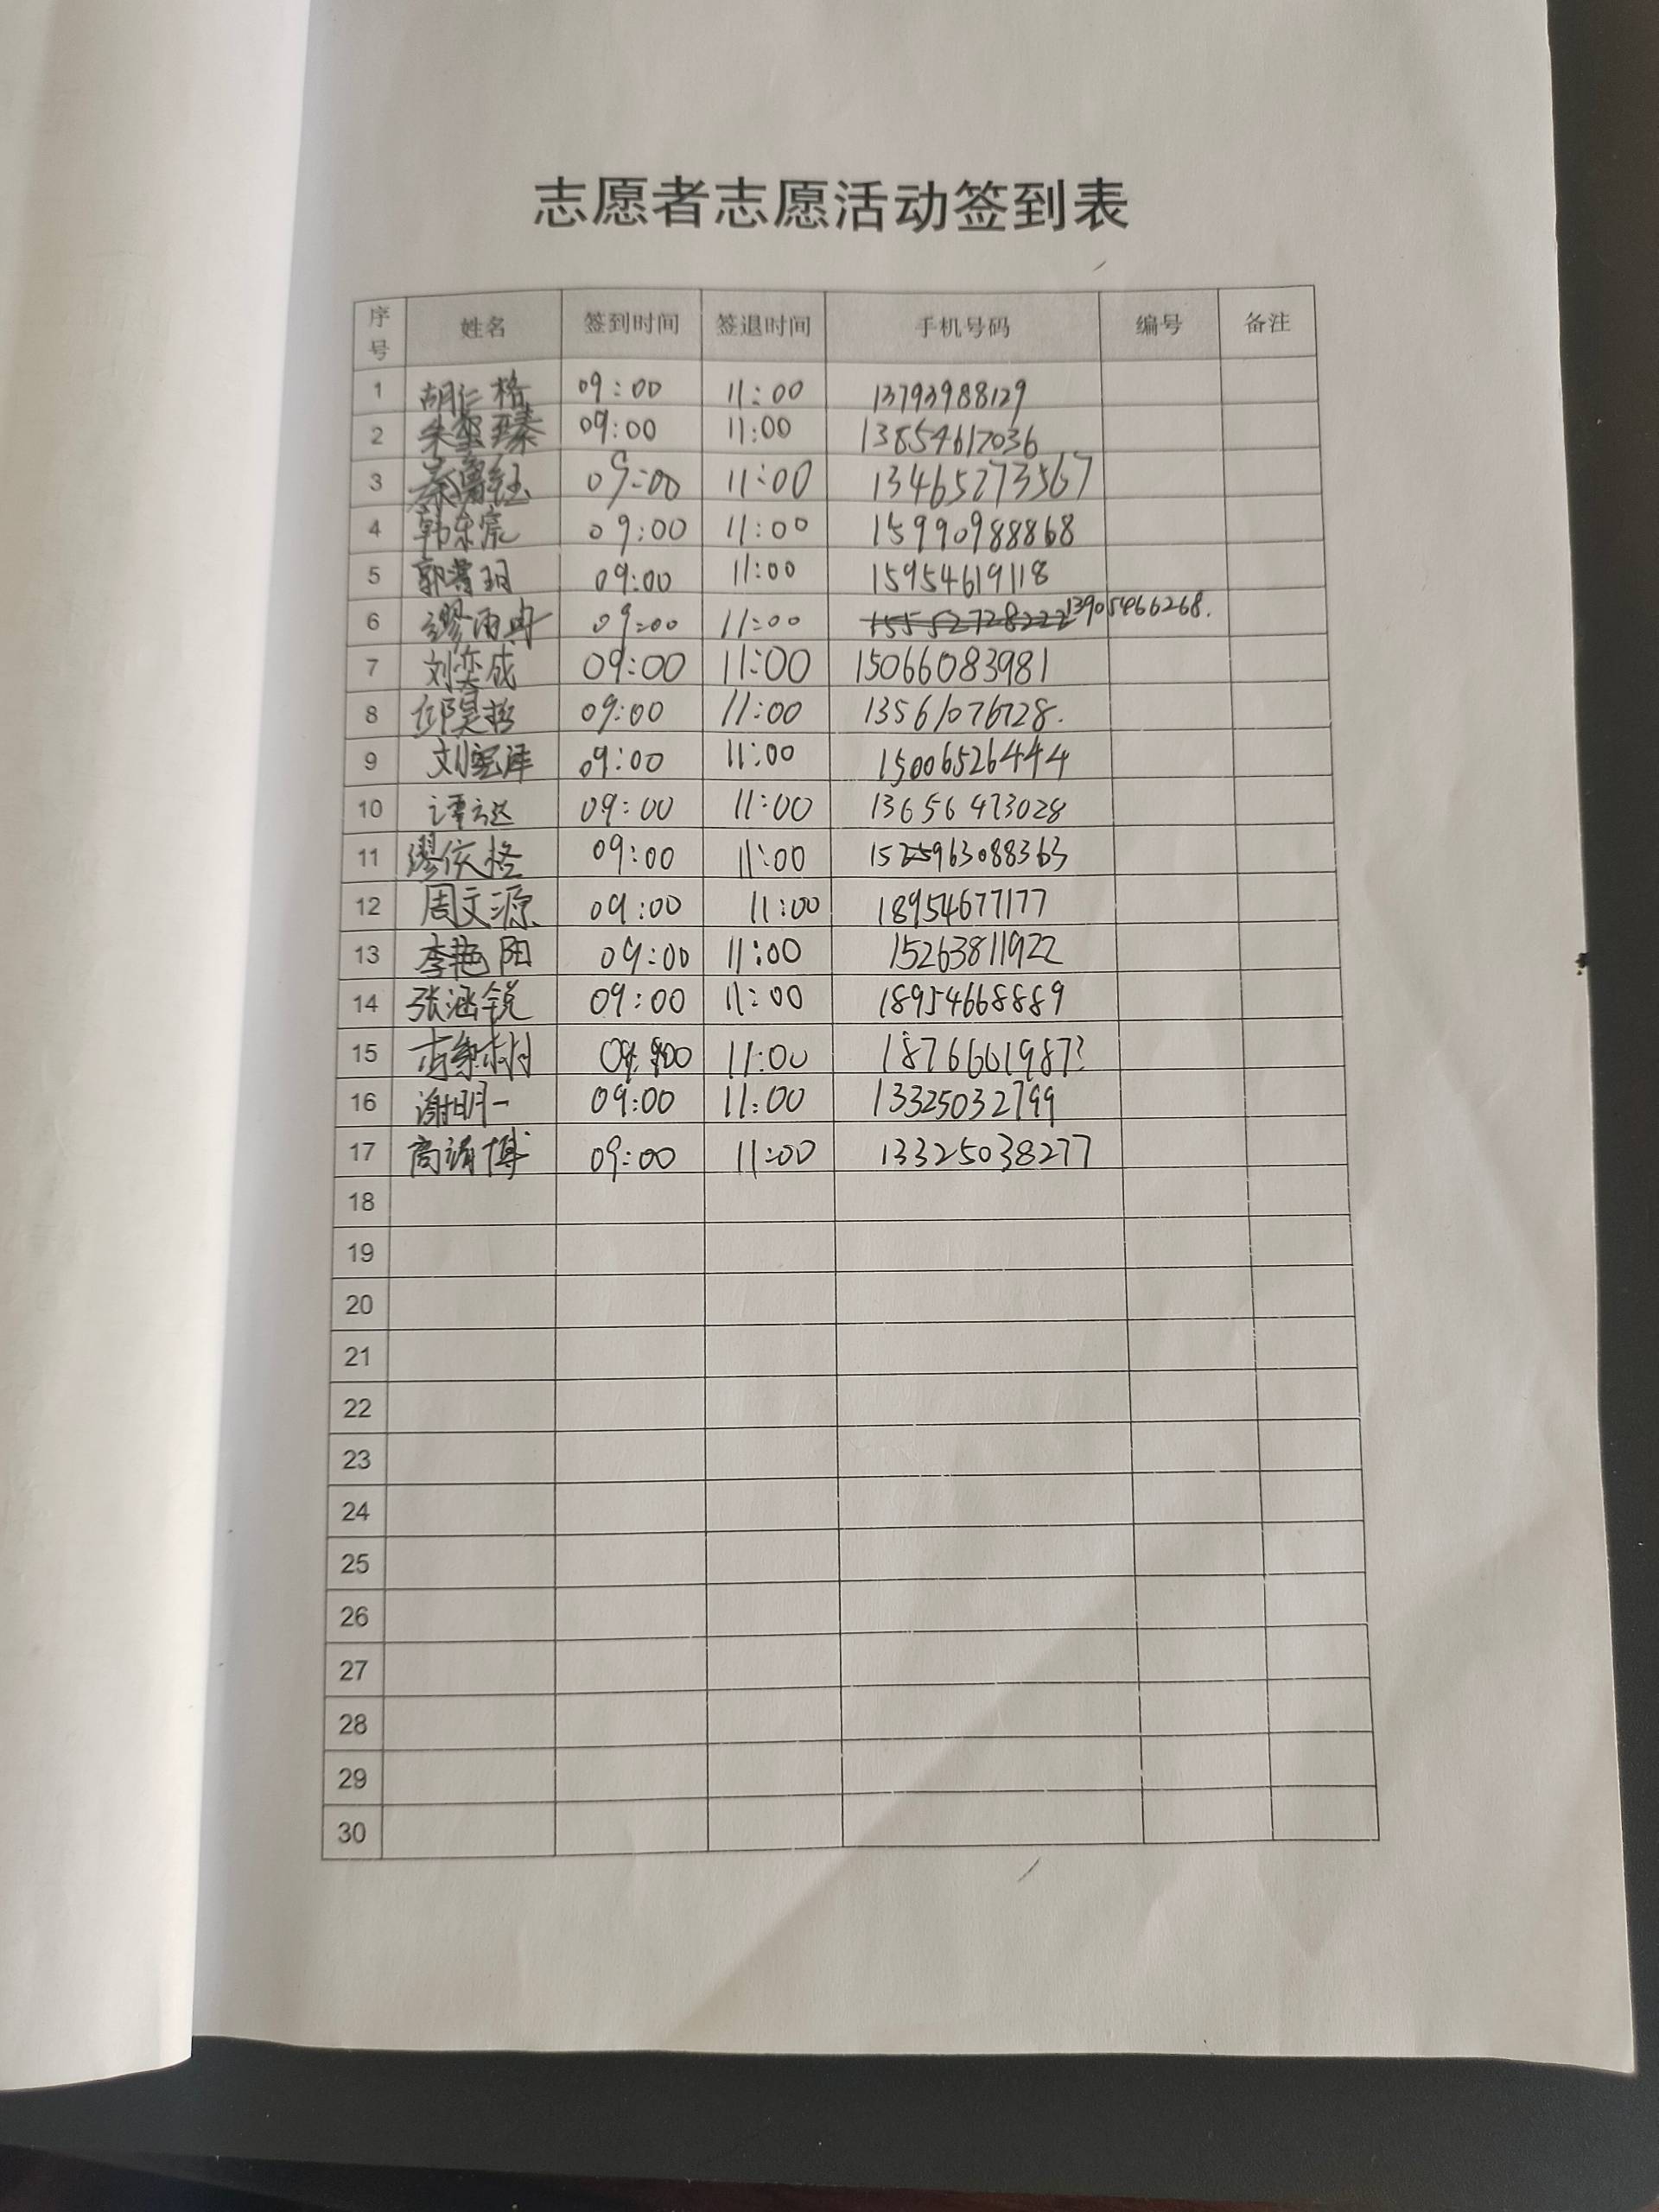 志愿者志愿活动签到表
序号 姓名 签到时间 签退时间 手机号码 编号 备注
1 胡仁格 09:00 11:00 13793988129
2 朱玺臻 09:00 11:00 13854617036
3 09:00 11:00 13465273567
4 韩东宸 09:00 11:00 15990988868
5 郭 09:00 11:00 15954619118
6 缪雨冉 09:00 11:00 13905466268.
7 刘奕成 09:00 11:00 15066083981
8 邱昊哲 09:00 11:00 13561076728.
9 刘宪泽 09:00 11:00 15006526444
10 谭云达 09:00 11:00 13656473028
11 缪依格 09:00 11:00
12 周文源 09:00 11:00 18954677177
13 李艳阳 09:00 11:00 15263811922
14 张涵锐 09:00 11:00 18954668889
15 11:00
16 谢明一 09:00 11:00 13325032799
17 高靖博 09:00 11:00 13325038277
18
19
20
21
22
23
24
25
26
27
28
29
30